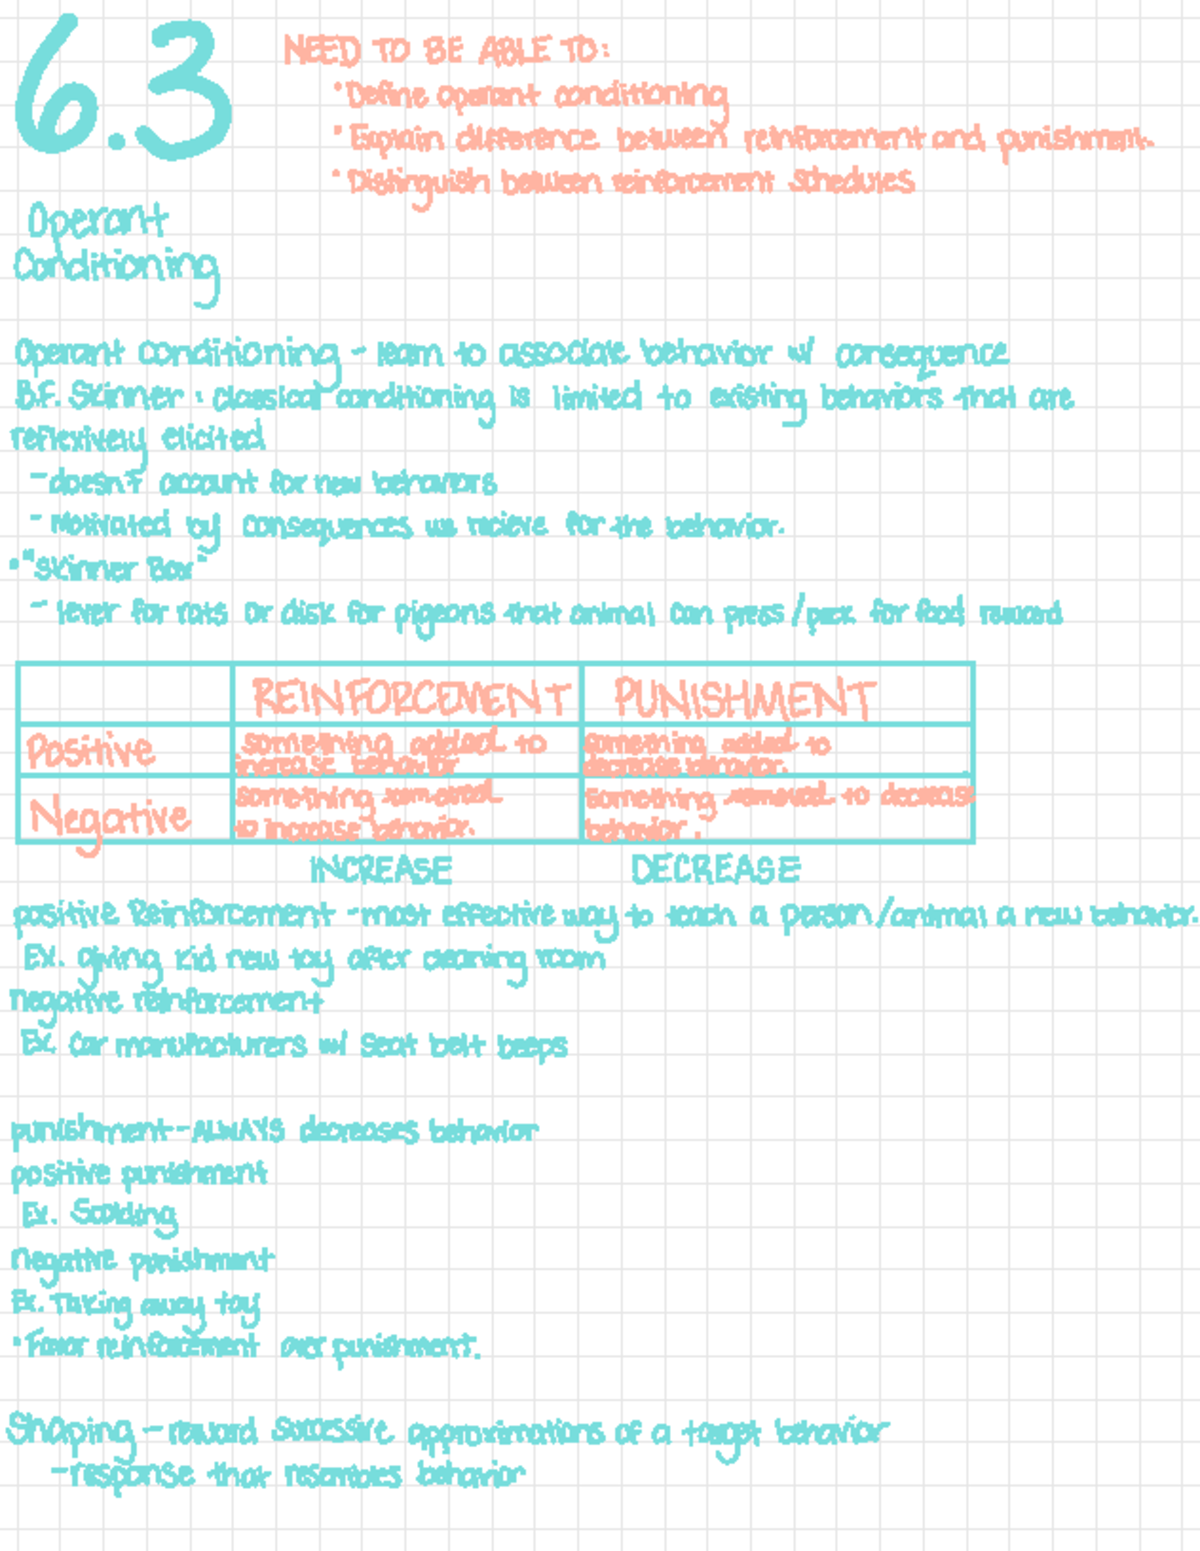 6.3
Operant
Conditioning
NEED TO BE ABLE TO:
•Define operant conditioning
•Explain difference between reinforcement and punishment.
•Distinguish between reinforcement schedules
Operant conditioning - learn to associate behavior w/ consequence
B.F. Skinner: classical conditioning is limited to existing behaviors that are
reflexively elicited
-doesn't account for new behaviors
- Motivated by consequences we recieve for the behavior.
•"Skinner Box"
- lever for rats or disk for pigeons that animal can press/peck for food reward
REINFORCEMENT PUNISHMENT
Positive
something added to
increase behavior
something added to
decrease behavior.
Negative
something removed
to increase behavior.
something removed to decrease
behavior.
INCREASE DECREASE
positive Reinforcement -most effective way to teach a person/animal a new behavior.
EX. giving kid new toy after cleaning room
negative reinforcement
Ex. Car manufacturers w/ seat belt beeps
punishment-ALWAYS decreases behavior
positive punishment
Ex. Scolding
negative punishment
Ex. Taking away toy
•Favor reinforcement over punishment.
Shaping - reward successive approximations of a target behavior
-response that resembles behavior